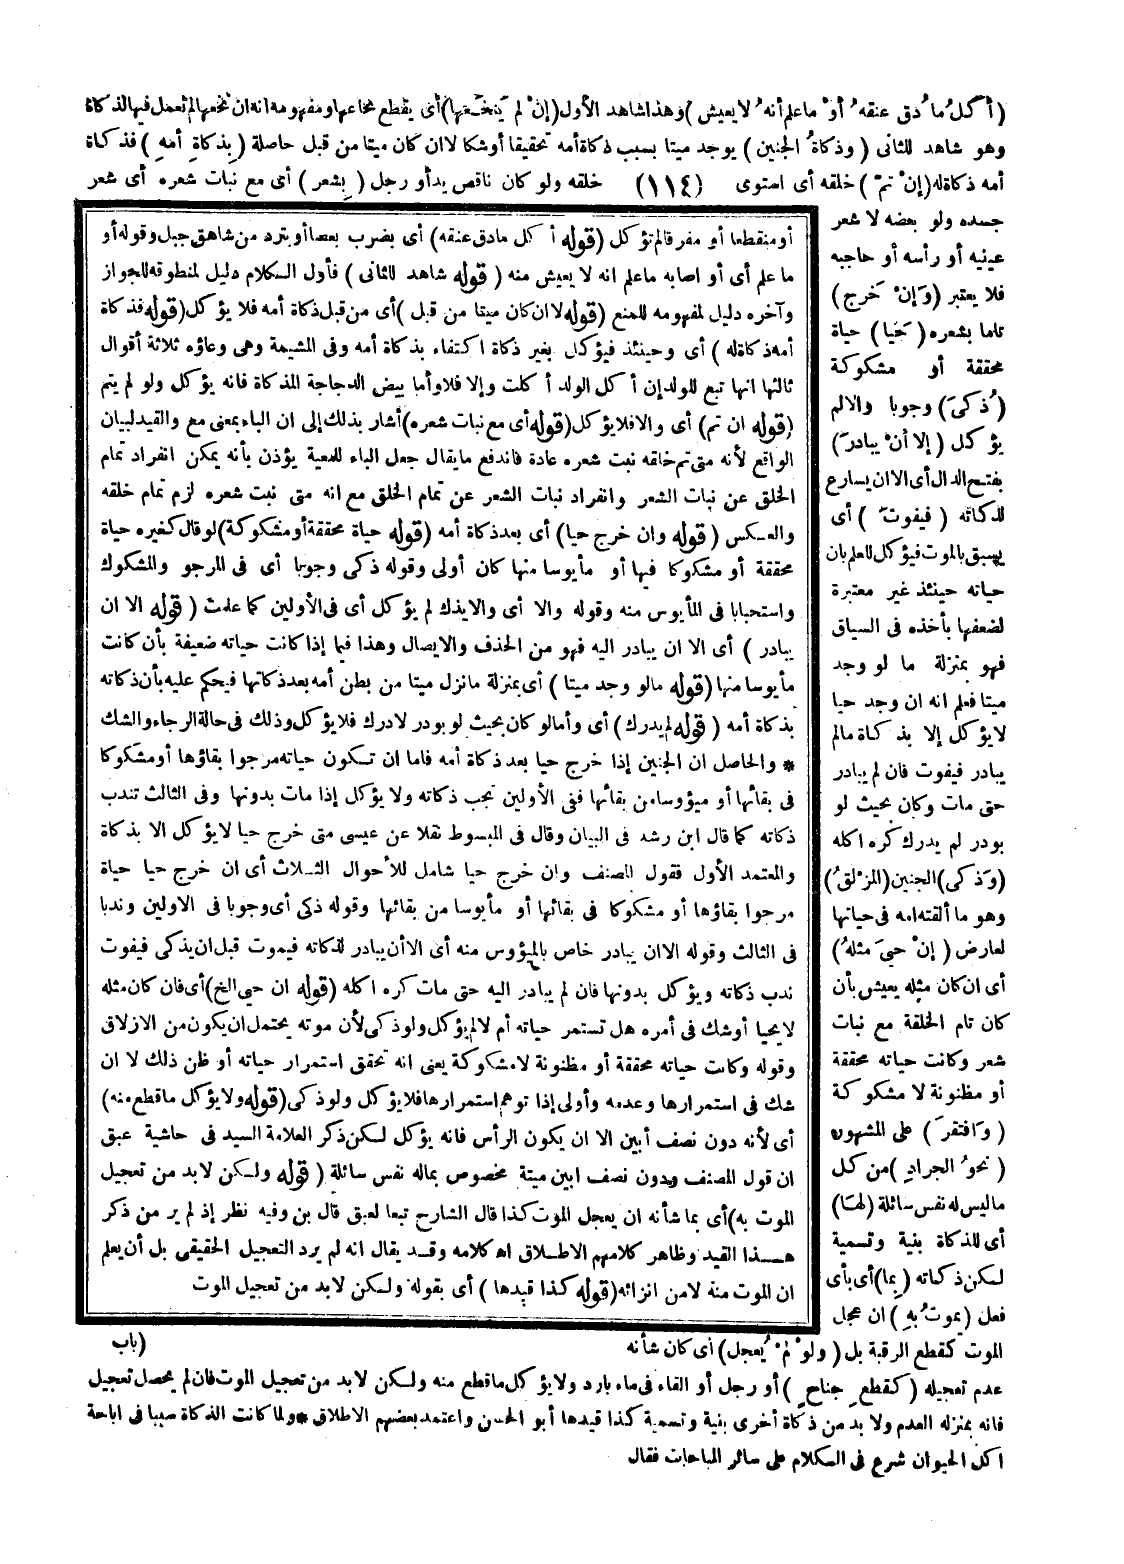 (أكلُ ما دُق عنقهُ أوْ ما علم أنهُ لا يعيش) وهذا شاهد الأول (إنْ لم يَنخعها) أى يقطع نخاعها ومفهومه انه ان نخعها لم تعمل فيها الذكاة
وهو شاهد للثانى (وذكاةُ الجنين) يوجد ميتا بسبب ذكاة أمه تحقيقا أو شكا لا ان كان ميتا من قبل حاصلة (بذكاةِ أمهِ) فذكاة
أمه ذكاة له (إنْ تمّ) خلقه أى استوى (١١٤) خلقه ولو كان ناقص يد أو رجل (بِشعر) أى مع نبات شعره أى شعر
جسده ولو بعضه لا شعر
عينيه أو رأسه أو حاجبه
فلا يعتبر (وَإنْ خَرج)
تاما بشعره (حَيا) حياة
محققة أو مشكوكة
(ذُكىَ) وجوبا والا لم
يؤكل (إلا أنْ يبادرَ)
بفتح الدال أى الا ان يسارع
للذكاته (فيفوتَ) أى
يسبق بالموت فيؤكل للعلم بان
حياته حينئذ غير معتبرة
لضعفها بأخذه فى السياق
فهو بمنزلة ما لو وجد
ميتا فعلم انه ان وجد حيا
لا يؤكل إلا بذكاة مالم
يبادر فيفوت فان لم يبادر
حتى مات وكان بحيث لو
بودر لم يدرك كره اكله
(وَذكى) الجنين (المزْلقُ)
وهو ما ألقته امه فى حياتها
لعارض (إنْ حيىَ مثلهُ)
أى ان كان مثله يعيش بأن
كان تام الخلقة مع نبات
شعر وكانت حياته محققة
أو مظنونة لا مشكوكة
(وَافتقرَ) على المشهور
(نحوُ الجرادِ) من كل
ما ليس له نفس سائلة (لهَا)
أى للذكاة بنية وتسمية
لكن ذكاته (بِما) أى بأى
فعل (يموتُ بهِ) ان عجل
الموت كقطع الرقبة بل (ولوْ لمْ يُعجل) أى كان شأنه
عدم تعجيله (كقطعِ جناحٍ) أو رجل أو القاء فى ماء بارد ولا يؤكل ما قطع منه ولكن لا بد من تعجيل الموت فان لم يحصل تعجيل
فانه بمنزلة العدم ولا بد من ذكاة أخرى بنية وتسمية كذا قيدها أبو الحسن واعتمد بعضهم الاطلاق * ولما كانت الذكاة سببا فى اباحة
اكل الحيوان شرع فى الكلام على سائر المباحات فقال
(باب
أو منقطعا أو مفر قالم تؤكل (قوله أكل مادق عنقه) أى بضرب بعصا أو بترد من شاهق جبل وقوله أو
ما علم أى أو اصابه ما علم انه لا يعيش منه (قوله شاهد للثانى) فأول الكلام دليل لمنطوقه للجواز
وآخره دليل لمفهومه للمنع (قوله لا ان كان ميتا من قبل) أى من قبل ذكاة أمه فلا يؤكل (قوله فذكاة
أمه ذكاة له) أى وحينئذ فيؤكل بغير ذكاة اكتفاء بذكاة أمه وفى المشيمة وهى وعاؤه ثلاثة أقوال
ثالثها انها تبع للولد إن أكل الولد أكلت وإلا فلا وأما بيض الدجاجة المذكاة فانه يؤكل ولو لم يتم
(قوله ان تم) أى والا فلا يؤكل (قوله أى مع نبات شعره) أشار بذلك إلى ان الباء بمعنى مع والقيد لبيان
الواقع لأنه متى تم خلقه نبت شعره عادة فاندفع ما يقال جعل الباء للمعية يؤذن بأنه يمكن انفراد تمام
الخلق عن نبات الشعر وانفراد نبات الشعر عن تمام الخلق مع انه متى نبت شعره لزم تمام خلقه
والعكس (قوله وان خرج حيا) أى بعد ذكاة أمه (قوله حياة محققة أو مشكوكة) لو قال كغيره حياة
محققة أو مشكوكا فيها أو مأيوسا منها كان أولى وقوله ذكى وجوبا أى فى المرجو والمشكوك
واستحبابا فى المأيوس منه وقوله والا أى والا يذك لم يؤكل أى فى الأولين كما علمت (قوله الا ان
يبادر) أى الا ان يبادر اليه فهو من الحذف والايصال وهذا فيما إذا كانت حياته ضعيفة بأن كانت
مأيوسا منها (قوله مالو وجد ميتا) أى بمنزلة ما نزل ميتا من بطن أمه بعد ذكاتها فيحكم عليه بأن ذكاته
بذكاة أمه (قوله لم يدرك) أى وأما لو كان بحيث لو بودر لادرك فلا يؤكل وذلك فى حالة الرجاء والشك
* والحاصل ان الجنين إذا خرج حيا بعد ذكاة أمه فاما ان تكون حياته مرجوا بقاؤها أو مشكوكا
فى بقائها أو ميؤوسا من بقائها ففى الأولين تجب ذكاته ولا يؤكل إذا مات بدونها وفى الثالث تندب
ذكاته كما قال ابن رشد فى البيان وقال فى المبسوط نقلا عن عيسى متى خرج حيا لا يؤكل الا بذكاة
والمعتمد الأول فقول المصنف وان خرج حيا شامل للأحوال الثلاث أى ان خرج حيا حياة
مرجوا بقاؤها أو مشكوكا فى بقائها أو مأيوسا من بقائها وقوله ذكى أى وجوبا فى الاولين وندبا
فى الثالث وقوله الا ان يبادر خاص بالميؤوس منه أى الا أن يبادر لذكاته فيموت قبل ان يذكى فيفوت
ندب ذكاته ويؤكل بدونها فان لم يبادر اليه حتى مات كره اكله (قوله ان حيى الخ) أى فان كان مثله
لا يحيا أو شك فى أمره هل تستمر حياته أم لا لم يؤكل ولو ذكى لأن موته يحتمل ان يكون من الازلاق
وقوله وكانت حياته محققة أو مظنونة لا مشكوكة يعنى انه تحقق استمرار حياته أو ظن ذلك لا ان
شك فى استمرارها وعدمه وأولى إذا توهم استمرارها فلا يؤكل ولو ذكى (قوله ولا يؤكل ما قطع منه)
أى لأنه دون نصف أبين الا ان يكون الرأس فانه يؤكل لكن ذكر العلامة السيد فى حاشية عبق
ان قول المصنف ودون نصف ابين ميتة مخصوص بماله نفس سائلة (قوله ولكن لابد من تعجيل
الموت به) أى بما شأنه ان يعجل الموت كذا قال الشارح تبعا لعبق قال بن وفيه نظر إذ لم ير من ذكر
هذا القيد وظاهر كلامهم الاطلاق اه كلامه وقد يقال انه لم يرد التعجيل الحقيقى بل أن يعلم
ان الموت منه لا من انزائه (قوله كذا قيدها) أى بقوله ولكن لا بد من تعجيل الموت